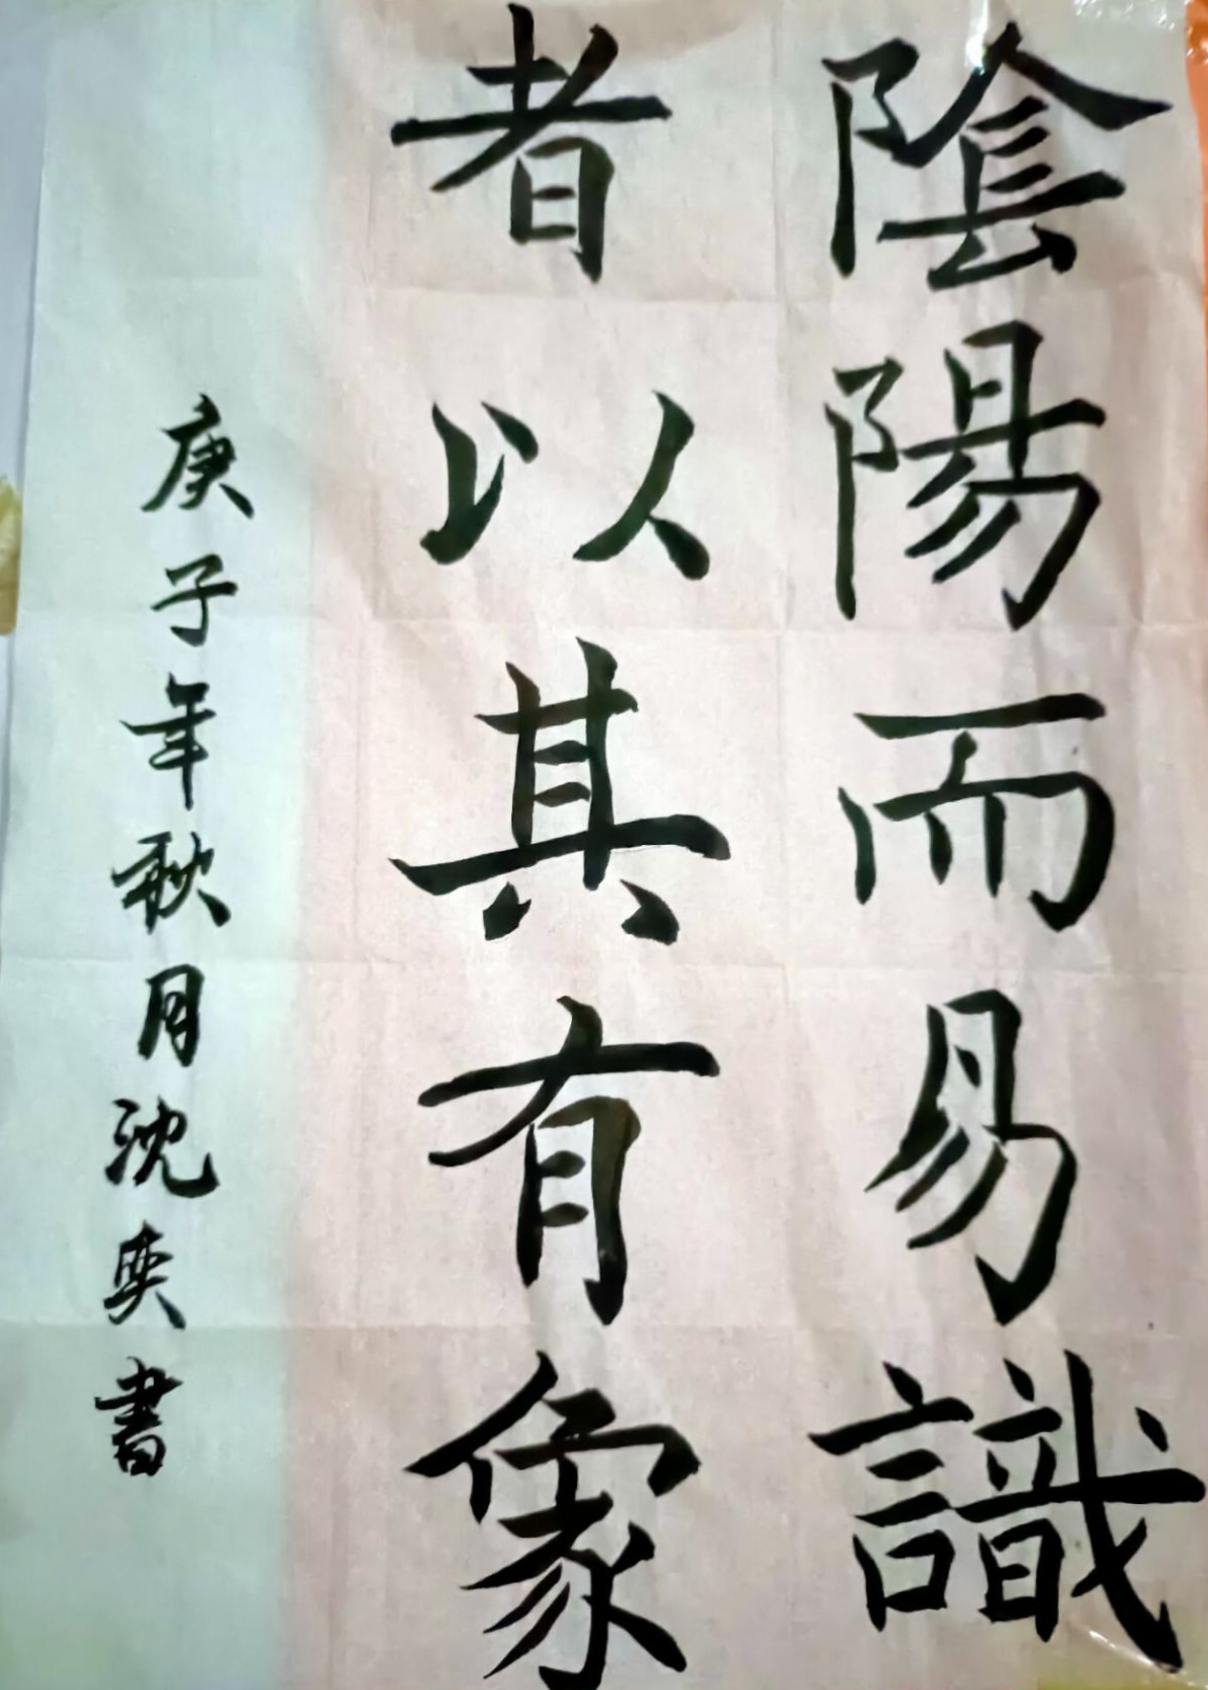 陰陽而易識
者以其有象
庚子年秋月沈奕書